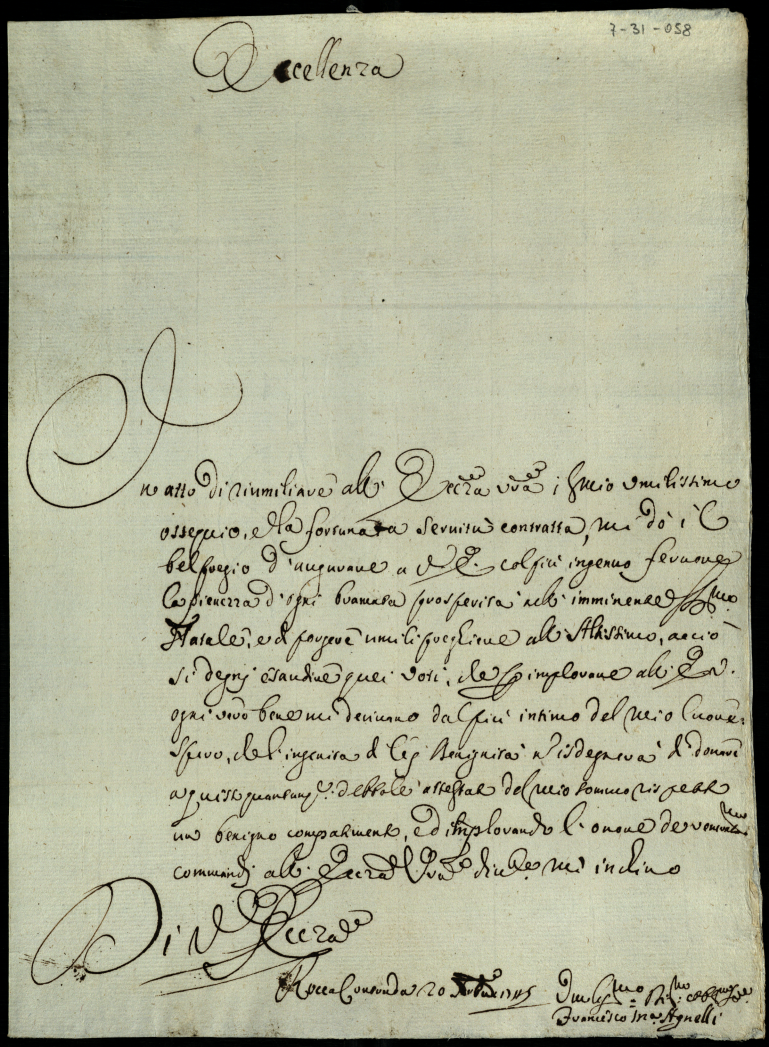 7-31-058
Eccellenza
In atto di riumiliare all' Eccza vra il mio umilissimo
ossequio, e la fortunata servitù contratta, mi dò il
bel pregio d'augurare a V. E. col più ingenuo fervore
la pienezza d'ogni bramata prosperità nell' imminente SSmo
Natale, e di porgere umili preghiere all' Altissimo, acciò
si degni esaudire quei voti, che implorare all' E. V.
ogni vero bene mi derivano dal più intimo del mio Cuore.
Spero, che l'ingenita di Lei Benignità isdegnerà di donare
a questo quantunq. debbole attestato del mio sommo rispetto
un benigno compatimento, ed implorando l'onore de
commandi all' Eccza Vra mi inchino
Di V. Eccza
Rocca Contrada 20
Francesco Ma Agnelli